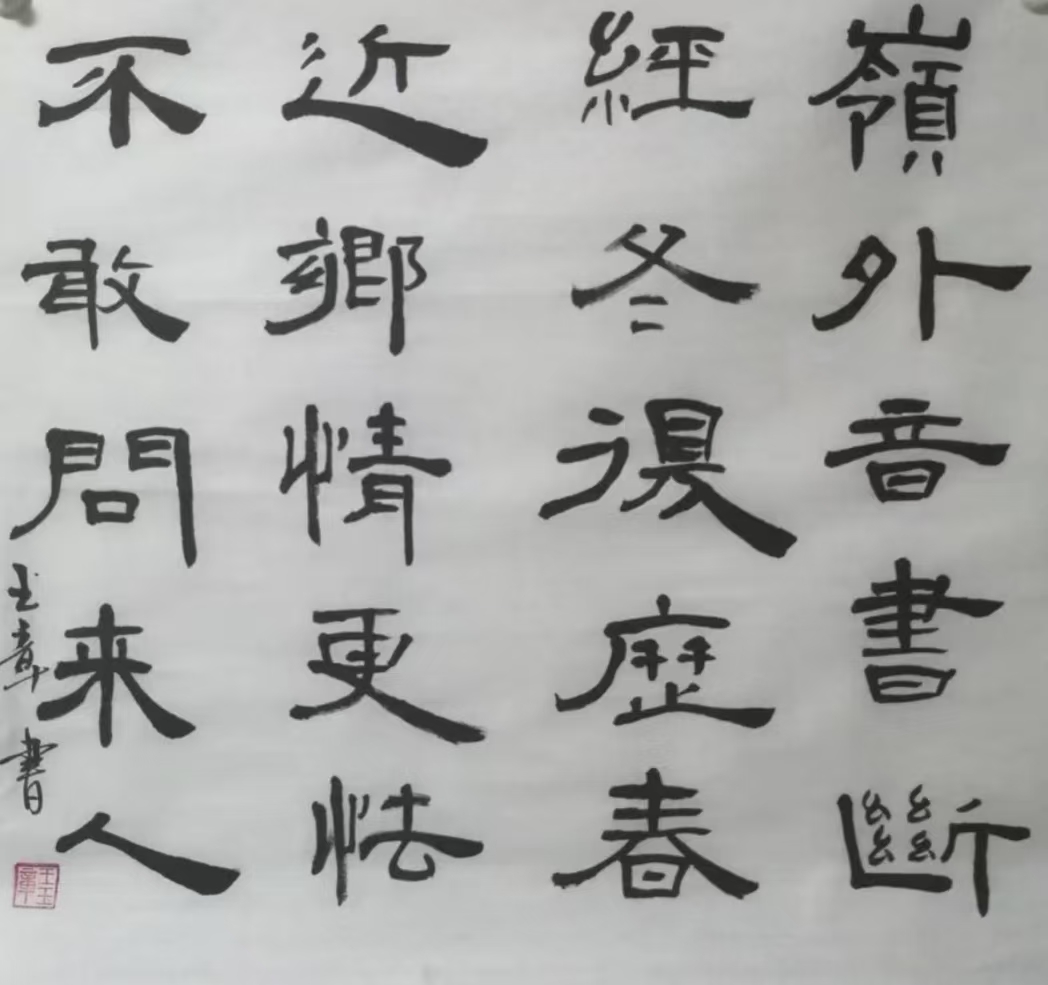 嶺外音書斷
經冬復歷春
近鄉情更怯
不敢問来人
玉章書